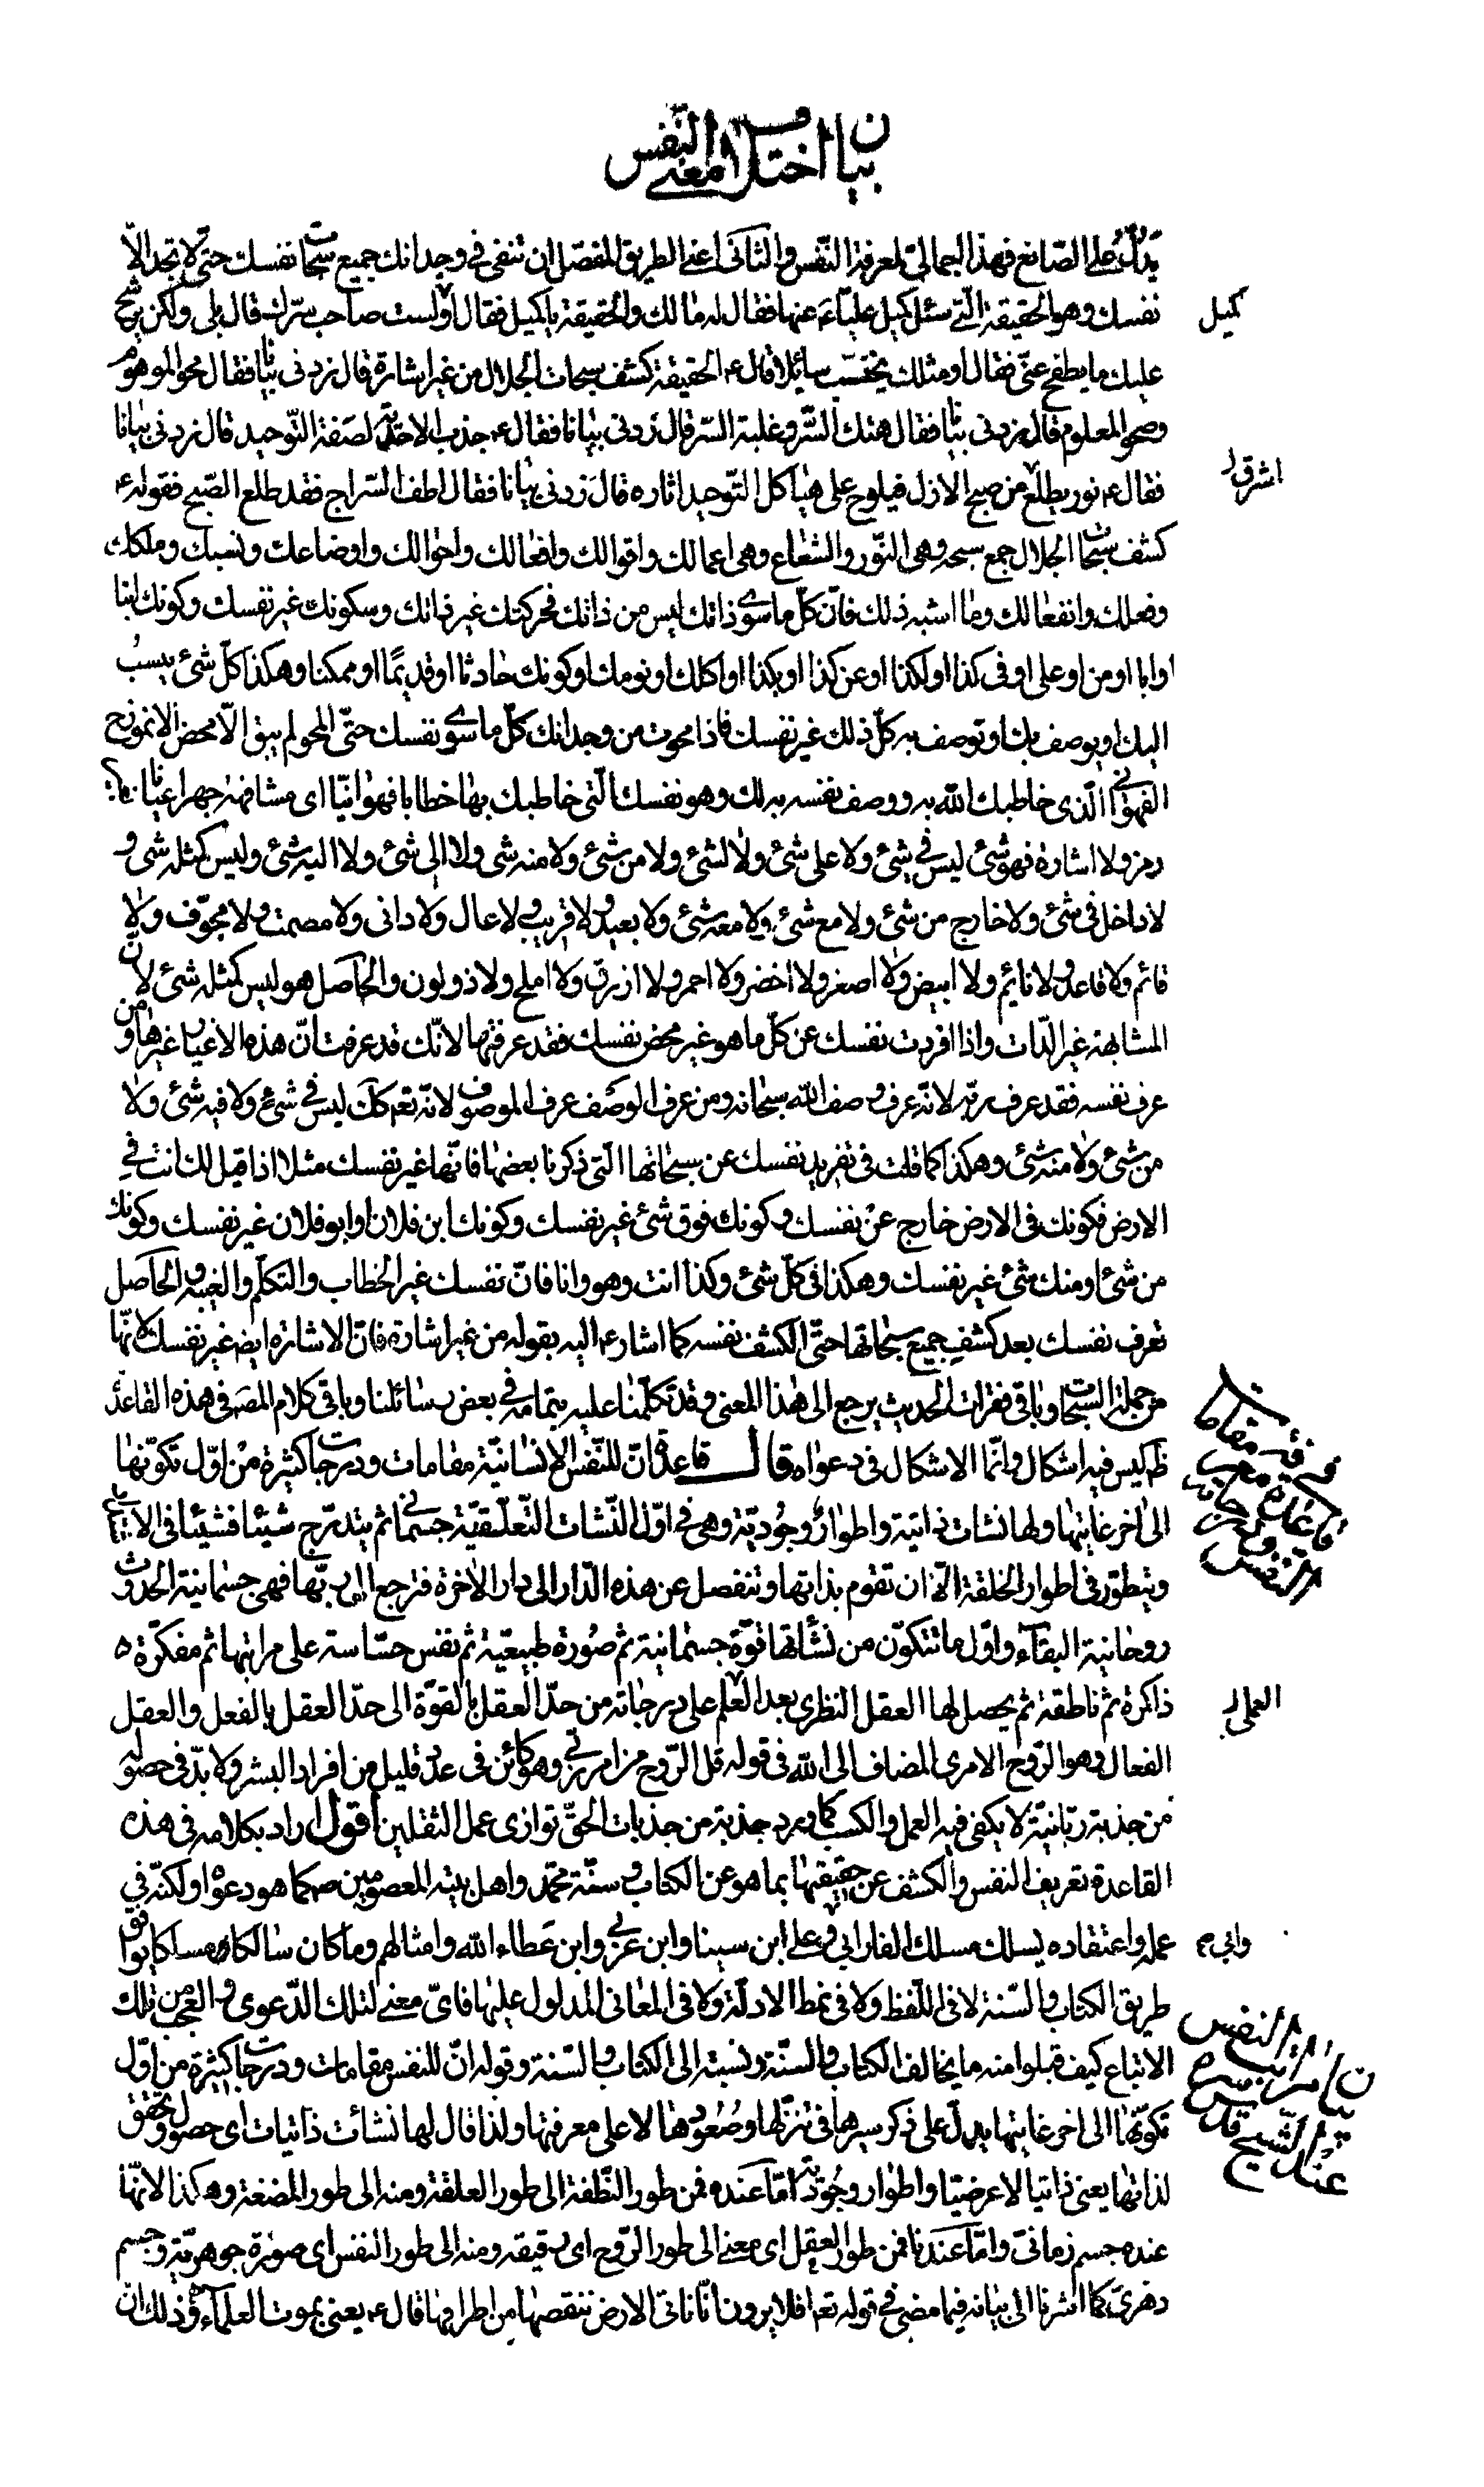 بيان اختلاف معنى النّفس
يدلّ على الصّانع فهذا اجمالىّ لمعرفة النّفس والثانى اعنى الطريق المفصّل ان تنفى فى وجدانك جميع سبحات نفسك حتّى لا تجد الّا
نفسك وهو الحقيقة الّتى سئل كميل عليّاً ء عنها فقال له مالك والحقيقة يا كميل فقال اولست صاحب سرّك قال بلى ولكن يرشح
كميل
عليك ما يطفح عنّى فقال اومثلك يخيّب سائلا قال ء الحقيقة كشف سبحات الجلال من غير اشارة قال زدنى بيانا فقال محو الموهوم
وصحو المعلوم قال زدنى بيانا فقال هتك السّر وغلبة السّر قال زدنى بيانا فقال ء جذب الاحديّة لصفة التّوحيد قال زدنى بيانا
فقال ء نور يطلع من صبح الازل فيلوح على هياكل التوحيد اثاره قال زدنى بيانا فقال اطف السّراج فقد طلع الصّبح فقوله ء
اشرق
كشف سبحات الجلال جمع سبحة وهى النّور والشعاع وهى اعمالك واقوالك وافعالك واحوالك واوضاعك ونسبك وملكك
وفعلك وانفعالك وما اشبه ذلك فانّ كلّ ما سوى ذاتك ليس من ذاتك فحركتك غير ذاتك وسكونك غير نفسك وكونك ابنا
او ابا او من او على او فى كذا او لكذا او عن كذا او بكذا او اكلك او نومك او كونك حادثا او قديمًا او ممكنا وهكذا كلّ شئ ينسب
اليك او يوصف بك او توصف به كلّ ذلك غير نفسك فاذا محوت من وجدانك كلّ ما سوى نفسك حتّى المحو لم يبق الّا محض الانموذج
الفهوانى الّذى خاطبك الله به ووصف نفسه به لك وهو نفسك الّتى خاطبك بها خطابا فهوانيّا اى مشافهة جهرا عيانا
رمز ولا اشارة فهو شئ ليس فى شئ ولا على شئ ولا لشئ ولا من شئ ولا منه شى ولا الى شئ ولا اليه شئ وليس كمثله شى و
لا داخل فى شئ ولا خارج من شئ ولا مع شئ ولا معه شئ ولا بعيد ولا قريب ولا عال ولا دانى ولا مصمت ولا مجوّف ولا
قائم ولا قاعد ولا نايم ولا ابيض ولا اصفر ولا اخضر ولا احمر ولا ازرق ولا املح ولا ذو لون والحاصل هو ليس كمثله شئ لانّ
المشابهة غير الذّات واذا افردت نفسك عن كلّ ما هو غير محض نفسك فقد عرفتها لانّك قد عرفت انّ هذه الاغيار غيرها ومن
عرف نفسه فقد عرف ربّه لانّه عرف وصف الله سبحانه ومن عرف الوصف عرف الموصوف لانّه تعم كك ليس فى شئ ولا فيه شئ ولا
من شئ ولا منه شئ وهكذا كما قلت فى تفريد نفسك عن سبحاتها الّتى ذكرنا بعضها فانّها غير نفسك مثلا اذا قيل لك انت فى
الارض فكونك فى الارض خارج عن نفسك وكونك فوق شئ غير نفسك وكونك ابن فلان او ابو فلان غير نفسك وكونك
من شئ او منك شئ غير نفسك وهكذا فى كلّ شئ وكذا انت وهو وانا فانّ نفسك غير الخطاب والتكلّم والغيبة والحاصل
تعرف نفسك بعد كشف جميع سبحاتها حتّى الكشف نفسه كما اشار ء اليه بقوله من غير اشارة فانّ الاشارة ايضا غير نفسك لانّها
من جملة السبحات وباقى فقرات الحديث يرجع الى هذا المعنى وقد تكلّمنا عليه بتمامه فى بعض رسائلنا وباقى كلام المصه فى هذه القاعدة
ظم ليس فيه اشكال وانّما الاشكال فى دعواه قال قاعدة انّ للنّفس الانسانيّة مقامات ودرجات كثيرة من اوّل تكوّنها
الى اخر غايتها ولها نشات ذاتيّة واطوار وجوديّة وهى فى اوّل النّشات التّعلّقيّة جسمانى ثم يتدرّج شيئا فشيئا فى الاشتداد
ويتطوّر فى اطوار الخلقة الى ان تقوم بذاتها وتنفصل عن هذه الدّار الى دار الاخرة فترجع الى ربّها فهى جسمانية الحدوث
روحانية البقآء واوّل ما تتكوّن من نشأتها قوّة جسمانية ثم صورة طبيعيّة ثم نفس حسّاسة على مراتبها ثم مفكرّة
ذاكرة ثم ناطقة ثم يحصل لها العقل النظرى بعد العلم على درجاته من حدّ العقل بالقوّة الى حدّ العقل بالفعل والعقل
العملى
الفعال وهو الرّوح الامرى المضاف الى الله فى قوله قل الرّوح من امر ربّى وهو كائن فى عدد قليل من افراد البشر ولا بدّ فى حصوله
من جذبة ربّانيّة لا يكفى فيه العمل والكسب كما ورد جذبة من جذبات الحقّ توازى عمل الثقلين اقول اراد بكلامه فى هذه
القاعدة تعريف النفس والكشف عن حقيقتها بما هو عن الكتاب وسنّة محمّد واهل بيته المعصومين ص كما هو دعواه ولكنّه فى
عمله واعتقاده يسلك مسلك الفارابى وعلى ابن سينا وابن عربى وابن عطاء الله وامثالهم وما كان سالكا مسلكا يوافق
وابى
طريق الكتاب والسّنة لا فى اللّفظ ولا فى نمط الادلّة ولا فى المعانى المدلول عليها فاىّ معنى لتلك الدّعوى والعجب من تلك
الاتباع كيف قبلوا منه ما يخالف الكتاب والسنّة ونسبته الى الكتاب والسّنة وقوله انّ للنفس مقامات ودرجات كثيرة من اوّل
بيان مراتب النفس عند الشيخ قدس سره
تكوّنها الى اخر غايتها يدلّ على ذكر سيرها فى تنزّلها وصعودها لا على معرفتها ولذا قال لها نشات ذاتيات اى حصول وتحقق
لذاتها يعنى ذاتيا لا عرضيّا واطوار وجوديّة امّا عنده فمن طور النّطفة الى طور العلقة ومنه الى طور المضغة وهكذا لانّها
عنده جسم زمانىّ وامّا عندنا فمن طور العقل اى معنى الى طور الرّوح اى رقيقة ومنه الى طور النفس اى صورة جوهريّة وجسم
دهرىّ كما اشرنا الى بيانه فيما مضى فى قوله تعم افلا يرون انّا ناتى الارض ننقصها من اطرافها قال ء يعنى بموت العلمآء وذلك انّ